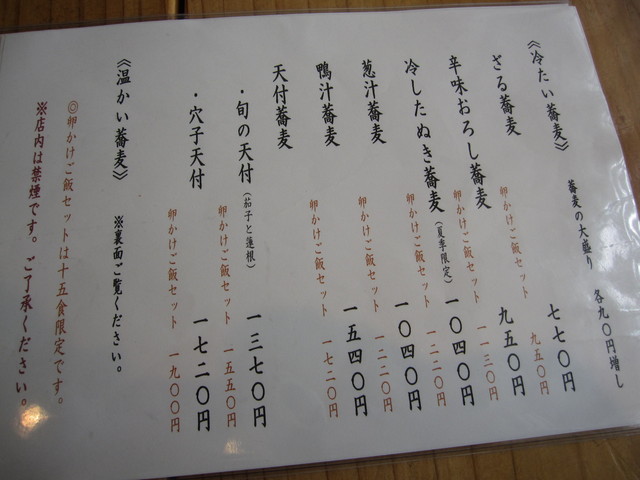 《冷たい蕎麦》 蕎麦の大盛り 各九〇円増し
ざる蕎麦 七七〇円
卵かけご飯セット 九五〇円
辛味おろし蕎麦 九五〇円
卵かけご飯セット 一一三〇円
冷したぬき蕎麦(夏季限定) 一〇四〇円
卵かけご飯セット 一二二〇円
葱汁蕎麦 一〇四〇円
卵かけご飯セット 一二二〇円
鴨汁蕎麦 一五四〇円
卵かけご飯セット 一七二〇円
天付蕎麦
・旬の天付(茄子と蓮根) 一三七〇円
卵かけご飯セット 一五五〇円
・穴子天付 一七二〇円
卵かけご飯セット 一九〇〇円
《温かい蕎麦》 ※裏面ご覧ください。
◎卵かけご飯セットは十五食限定です。
※店内は禁煙です。ご了承ください。